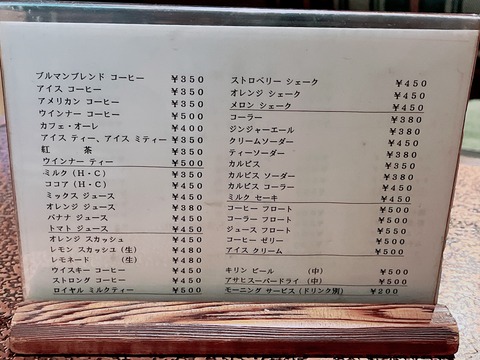 ブルマンブレンド コーヒー ¥350
アイス コーヒー ¥350
アメリカン コーヒー ¥350
ウインナー コーヒー ¥500
カフェ・オーレ ¥400
アイス ティー、アイス ミティー ¥350
紅 茶 ¥350
ウインナー ティー ¥500
ミルク (H・C) ¥350
ココア (H・C) ¥450
ミックス ジュース ¥450
オレンジ ジュース ¥380
バナナ ジュース ¥450
トマト ジュース ¥450
オレンジ スカッシュ ¥450
レモン スカッシュ (生) ¥480
レモネード (生) ¥480
ウイスキー コーヒー ¥450
ストロング コーヒー ¥450
ロイヤル ミルクティー ¥500
ストロベリー シェーク ¥450
オレンジ シェーク ¥450
メロン シェーク ¥450
コーラー ¥380
ジンジャーエール ¥380
クリームソーダー ¥450
ティーソーダー ¥380
カルピス ¥350
カルピス ソーダー ¥380
カルピス コーラー ¥450
ミルク セーキ ¥450
コーヒー フロート ¥500
コーラー フロート ¥500
ジュース フロート ¥550
コーヒー ゼリー ¥500
アイス クリーム ¥500
キリン ビール (中) ¥500
アサヒスーパードライ (中) ¥500
モーニング サービス (ドリンク別) ¥200